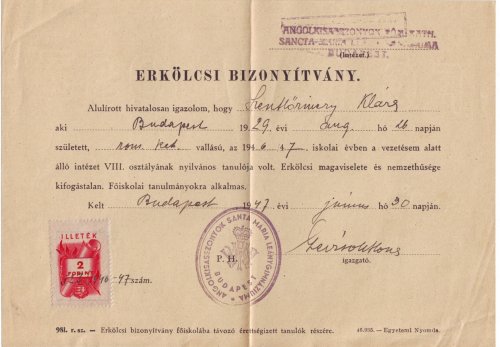 ANGOLKISASSZONYOK RÓM. KATH.
SANCTA MARIA
BUDAPEST.
(Intézet.)
ERKÖLCSI BIZONYÍTVÁNY.
Alulírott hivatalosan igazolom, hogy Szentkőrinczy Klára
aki Budapest 1929. évi aug hó 26 napján
született, rom. kat. vallású, az 1946/47. iskolai évben a vezetésem alatt
álló intézet VIII. osztályának nyilvános tanulója volt. Erkölcsi magaviselete és nemzethűsége
kifogástalan. Főiskolai tanulmányokra alkalmas.
Kelt Budapest 1947 évi június hó 30 napján.
ILLETÉK
2
FORINT
1946-47 szám.
P. H.
ANGOLKISASSZONYOK SANCTA MARIA LEÁNYGIMNÁZIUMA
BUDAPEST
igazgató.
981. r. sz. — Erkölcsi bizonyítvány főiskolába távozó érettségizett tanulók részére.
46.935. — Egyetemi Nyomda.